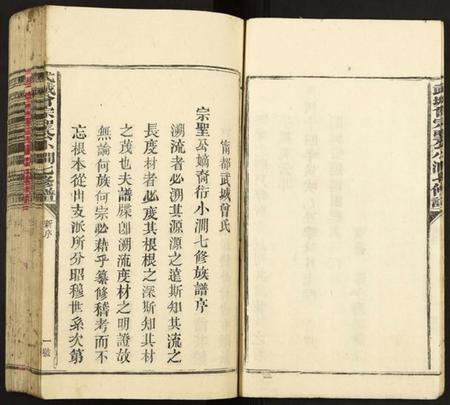 武城曾宗聖公小澗七修譜
甯都武城曾氏
宗聖公嫡裔衍小澗七修族譜序
溯流者必溯其源源之遠斯知其流之
長度材者必度其根根之深斯知其材
之茂也夫譜牒卽溯流度材之明證故
無論何族何宗必藉乎纂修稽考而不
忘根本從出支派所分昭穆世系次第
武城曾宗聖公小澗七修譜
新序
一